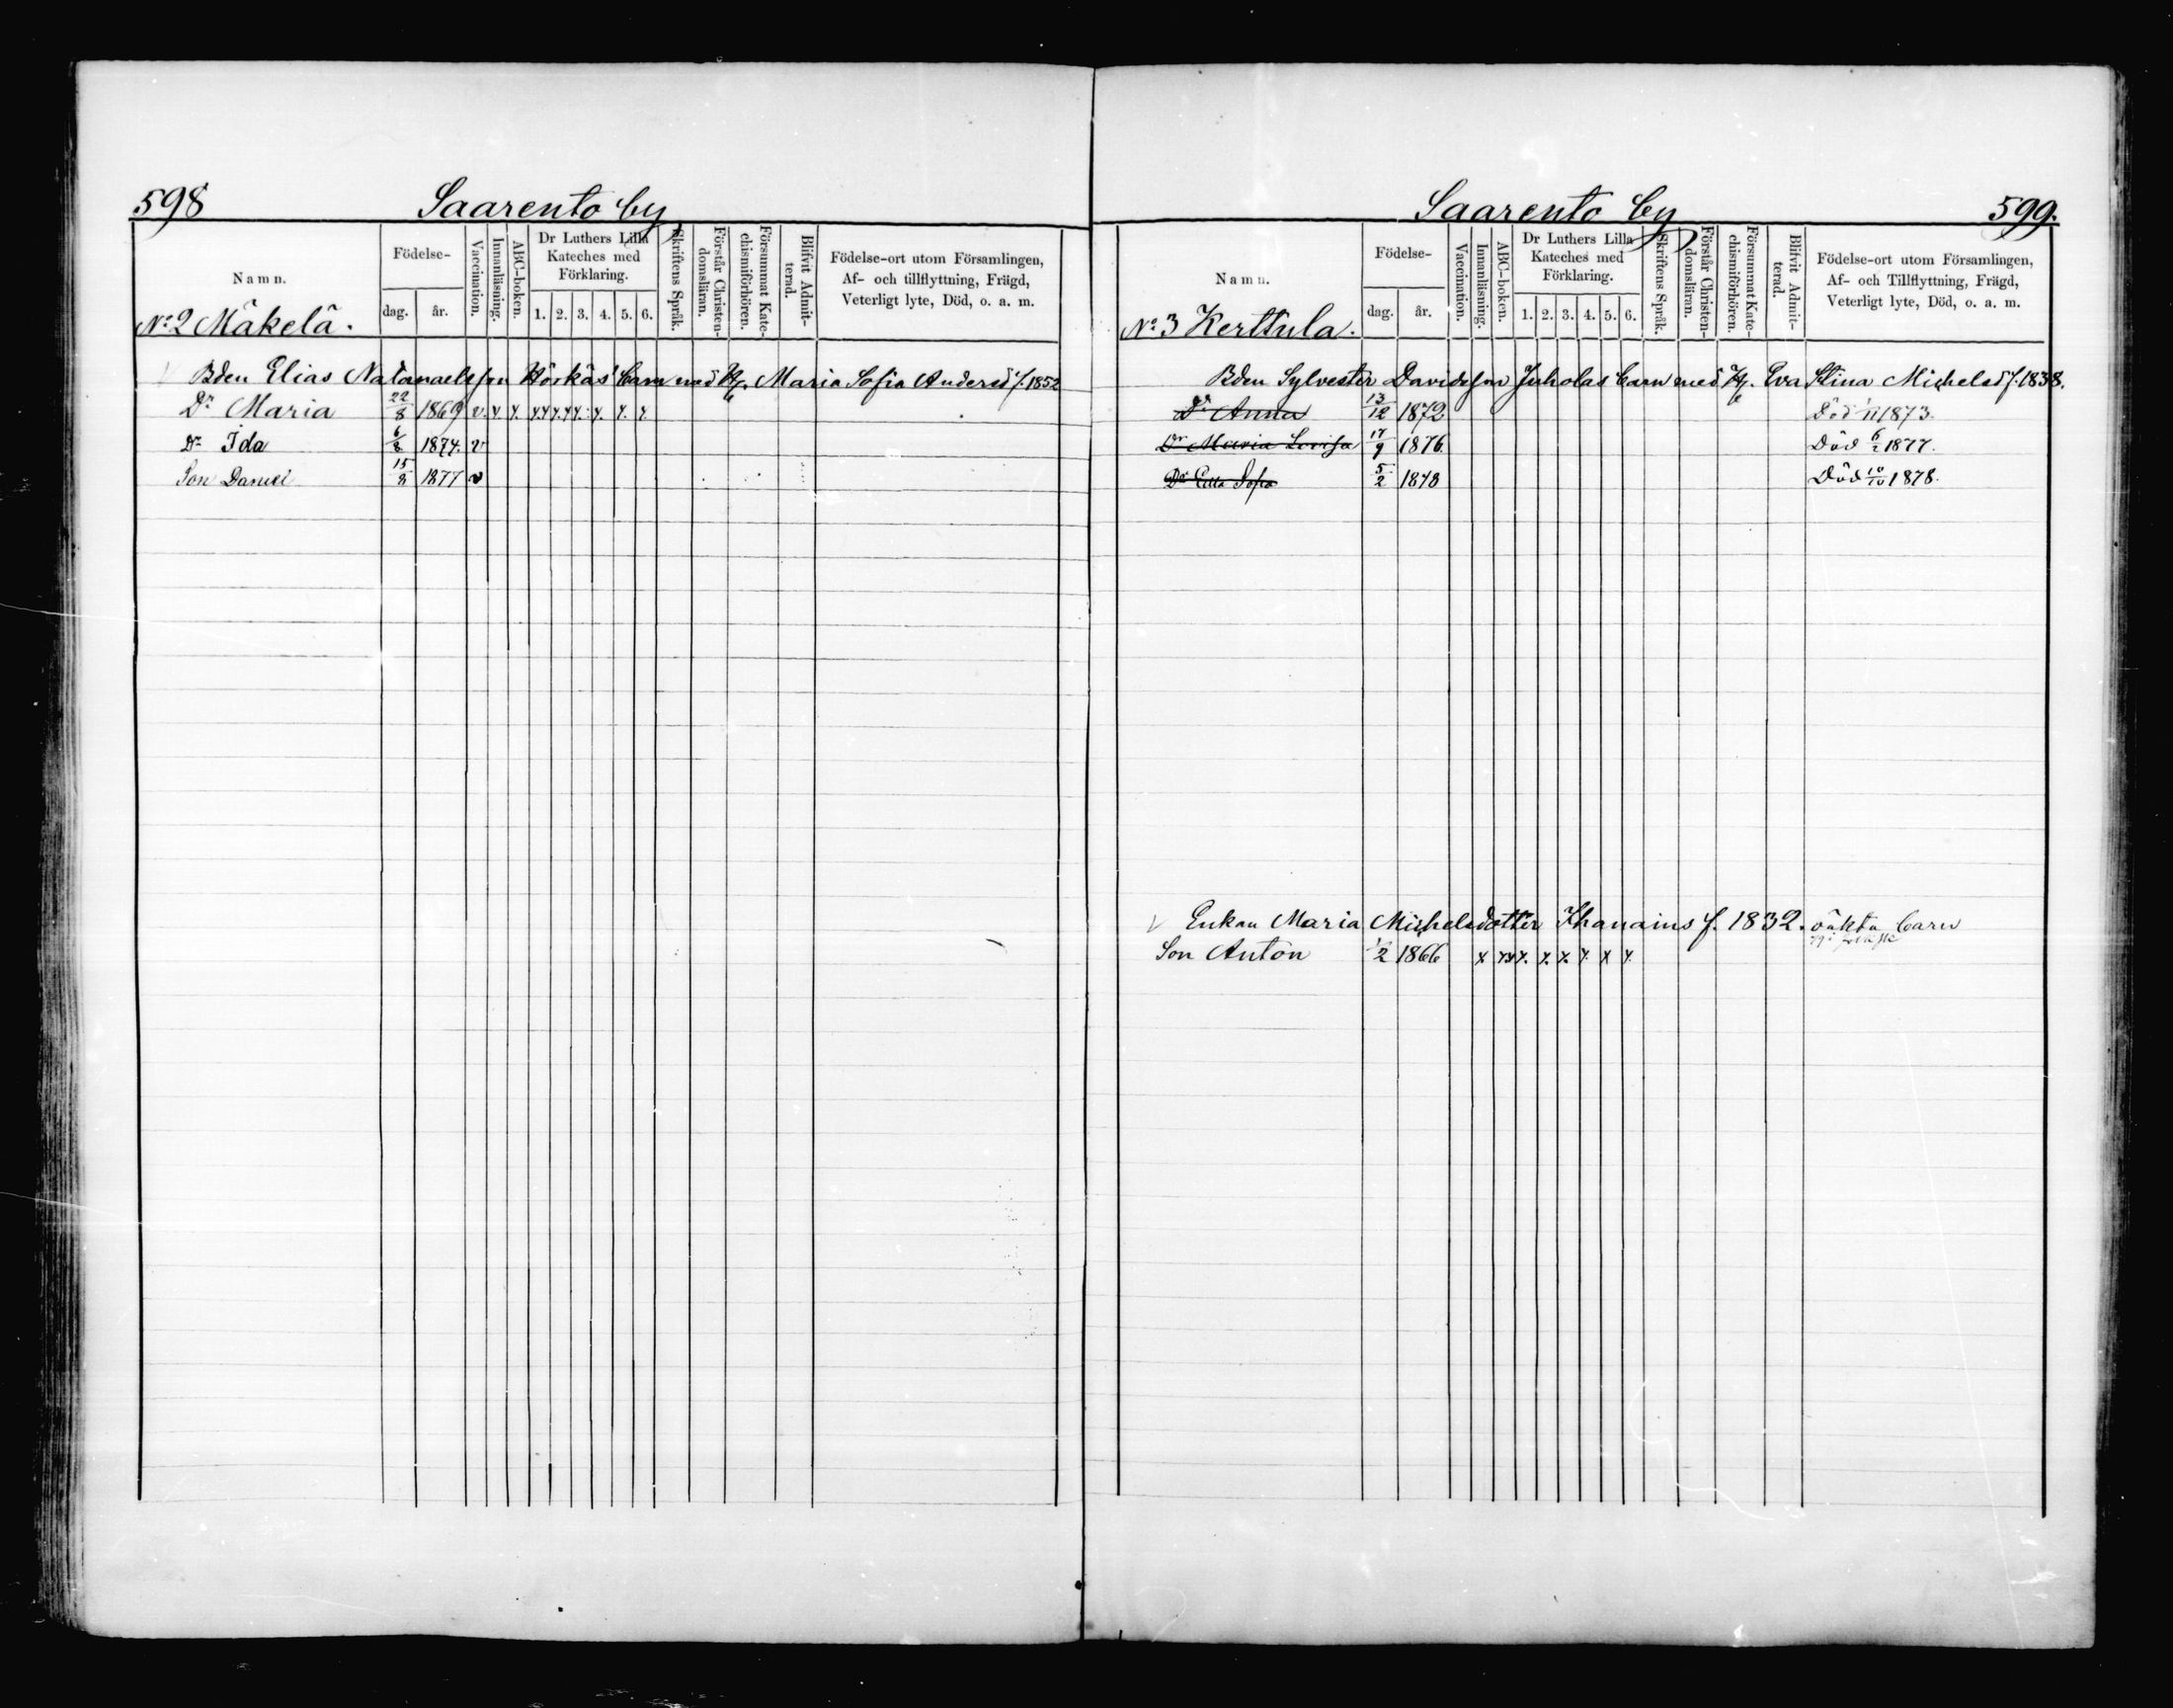 598 Saarento by
Namn.
Födelse-
dag. år.
Vaccination.
Innanläsning.
ABC-boken.
Dr Luthers Lilla Kateches med Förklaring.
1. 2. 3. 4. 5. 6.
Skriftens Språk.
Förstår Christen-domsläran.
Försummat Kate-chismiförhören.
Blifvit Admit-terad.
Födelse-ort utom Församlingen,
Af- och tillflyttning, Frägd,
Veterligt lyte, Död, o. a. m.
No 2 Mäkelä.
Bden Elias Natanaelsson Hörkäs barn med H. Maria Sofia Andersd f. 1852
Dr Maria 22/8 1869 v. x x x x x x x x x
Dr Ida 6/8 1874. v
Son Daniel 15/8 1877 v
Saarento by 599.
Namn.
Födelse-
dag. år.
Vaccination.
Innanläsning.
ABC-boken.
Dr Luthers Lilla Kateches med Förklaring.
1. 2. 3. 4. 5. 6.
Skriftens Språk.
Förstår Christen-domsläran.
Försummat Kate-chismiförhören.
Blifvit Admit-terad.
Födelse-ort utom Församlingen,
Af- och Tillflyttning, Frägd,
Veterligt lyte, Död, o. a. m.
No 3 Kerttula.
Bden Sylvester Davidsson Juholas barn med H. Eva Stina Michelsd f. 1838.
Dr Anna 13/12 1872 Död 1/11 1873.
Dr Maria Lovisa 17/9 1876. Död 6/2 1877.
Dr Sofia 5/2 1878 Död 10/10 1878.
Enkan Maria Michelsdotter Ihanains f. 1832. oäkta barn
Son Anton 1866 x x x x x x x x